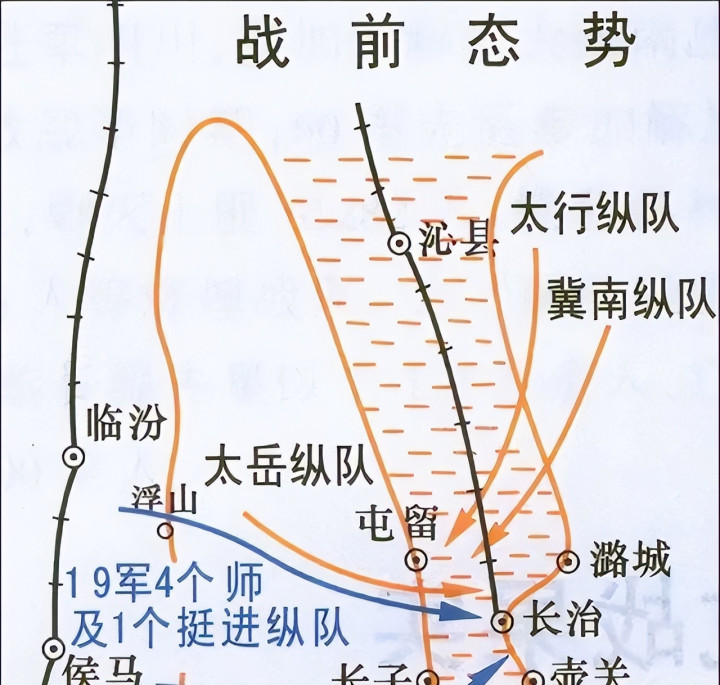 战前态势
沁县
太行纵队
冀南纵队
临汾
太岳纵队
浮山
屯留
潞城
19军4个师
及1个挺进纵队
长治
侯马
长子
壶关